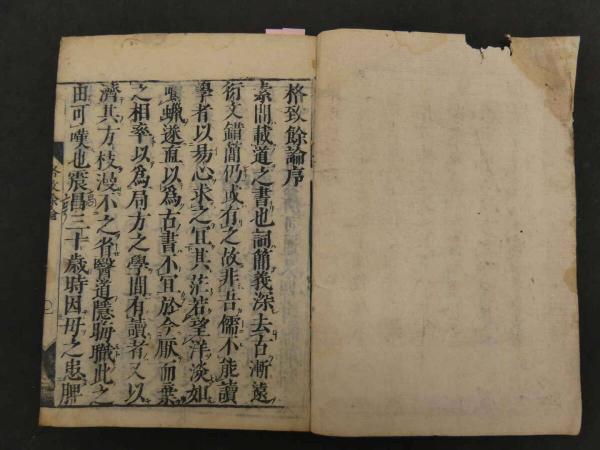 格致餘論序
素問載道之書也詞簡義深去古漸遠
衍文錯簡仍或有之故非吾儒不能讀
學者以易心求之宜其茫若望洋淡如
嚼蠟遂直以為古書不宜於今厭而棄
之相率以為局方之學間有讀者又以
濟其方枝漫不之省醫道隱晦職此之
由可嘆也震昌三十歲時因母之患脾
格致餘論